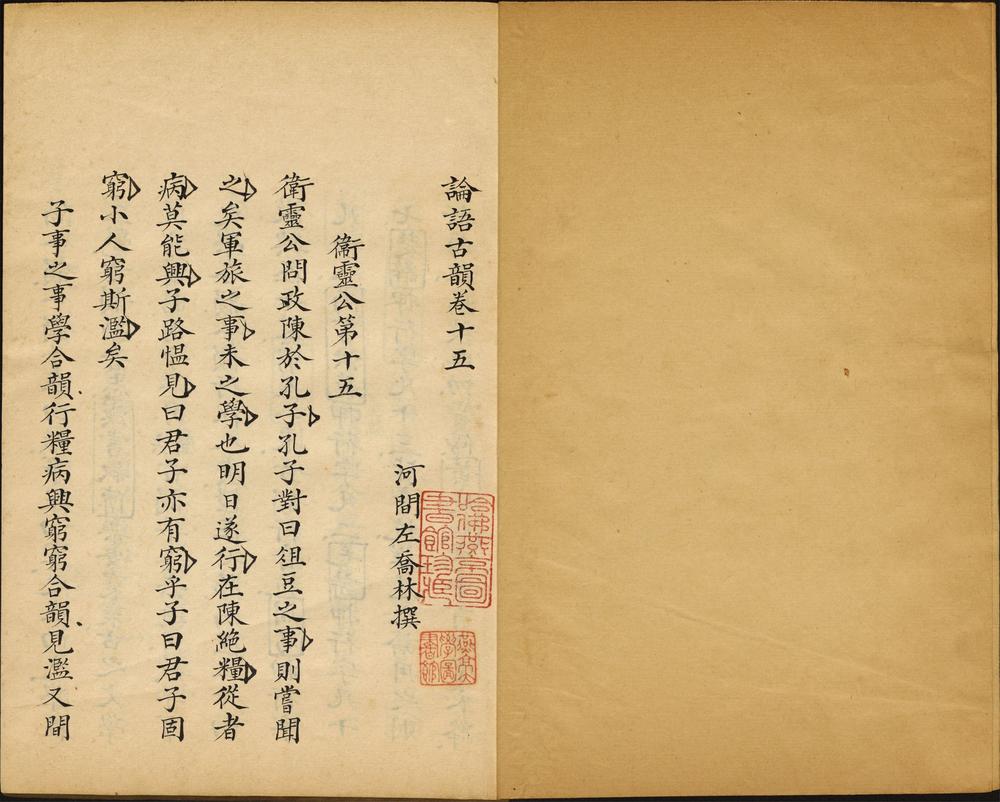 論語古韻卷十五
河間左喬林撰
衞靈公第十五
衛靈公問政陳於孔子孔子對曰俎豆之事則嘗聞
之矣軍旅之事未之學也明日遂行在陳絶糧從者
病莫能興子路愠見曰君子亦有窮乎子曰君子固
窮小人窮斯濫矣
子事之事學合韻行糧病興窮窮合韻見濫又間
哈佛燕京圖
書館珍藏